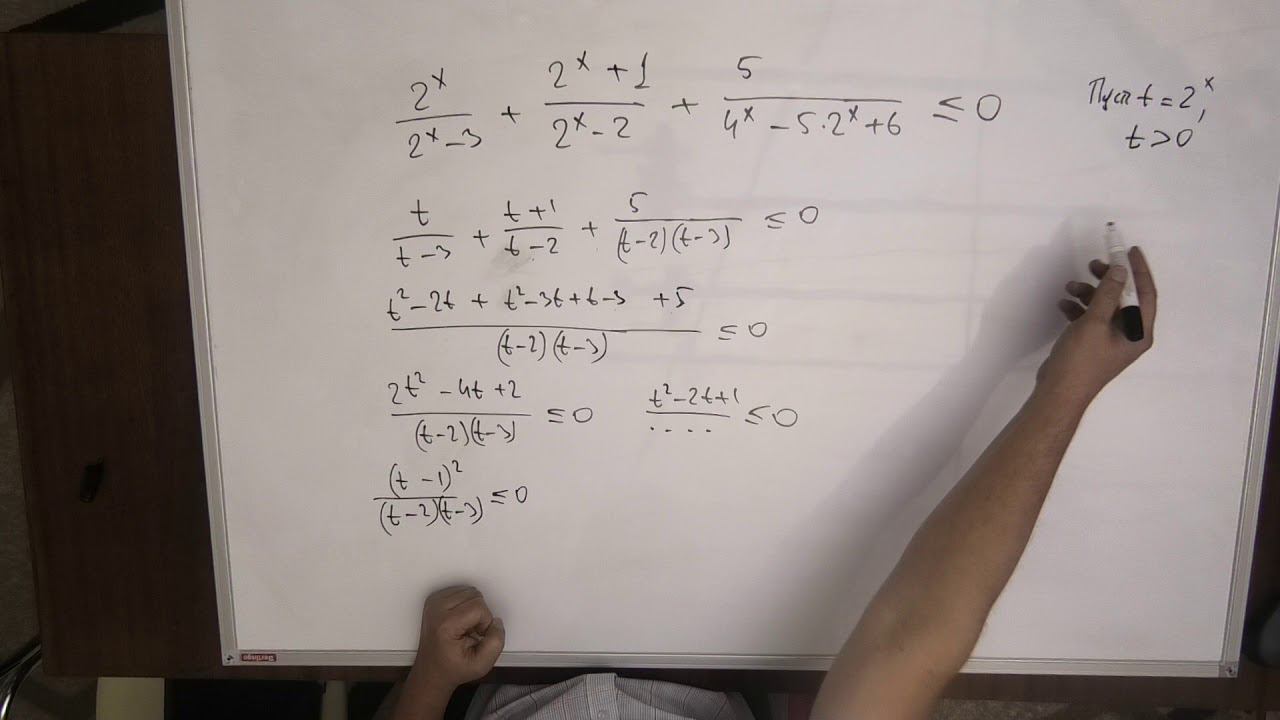 2^x/(2^x - 3) + (2^x + 1)/(2^x - 2) + 5/(4^x - 5·2^x + 6) ≤ 0
Пуст t = 2^x,
t > 0
t/(t - 3) + (t + 1)/(t - 2) + 5/((t - 2)(t - 3)) ≤ 0
(t² - 2t + t² - 3t + t - 3 + 5)/((t - 2)(t - 3)) ≤ 0
(2t² - 4t + 2)/((t - 2)(t - 3)) ≤ 0 (t² - 2t + 1)/.... ≤ 0
(t - 1)²/((t - 2)(t - 3)) ≤ 0
Berlingo